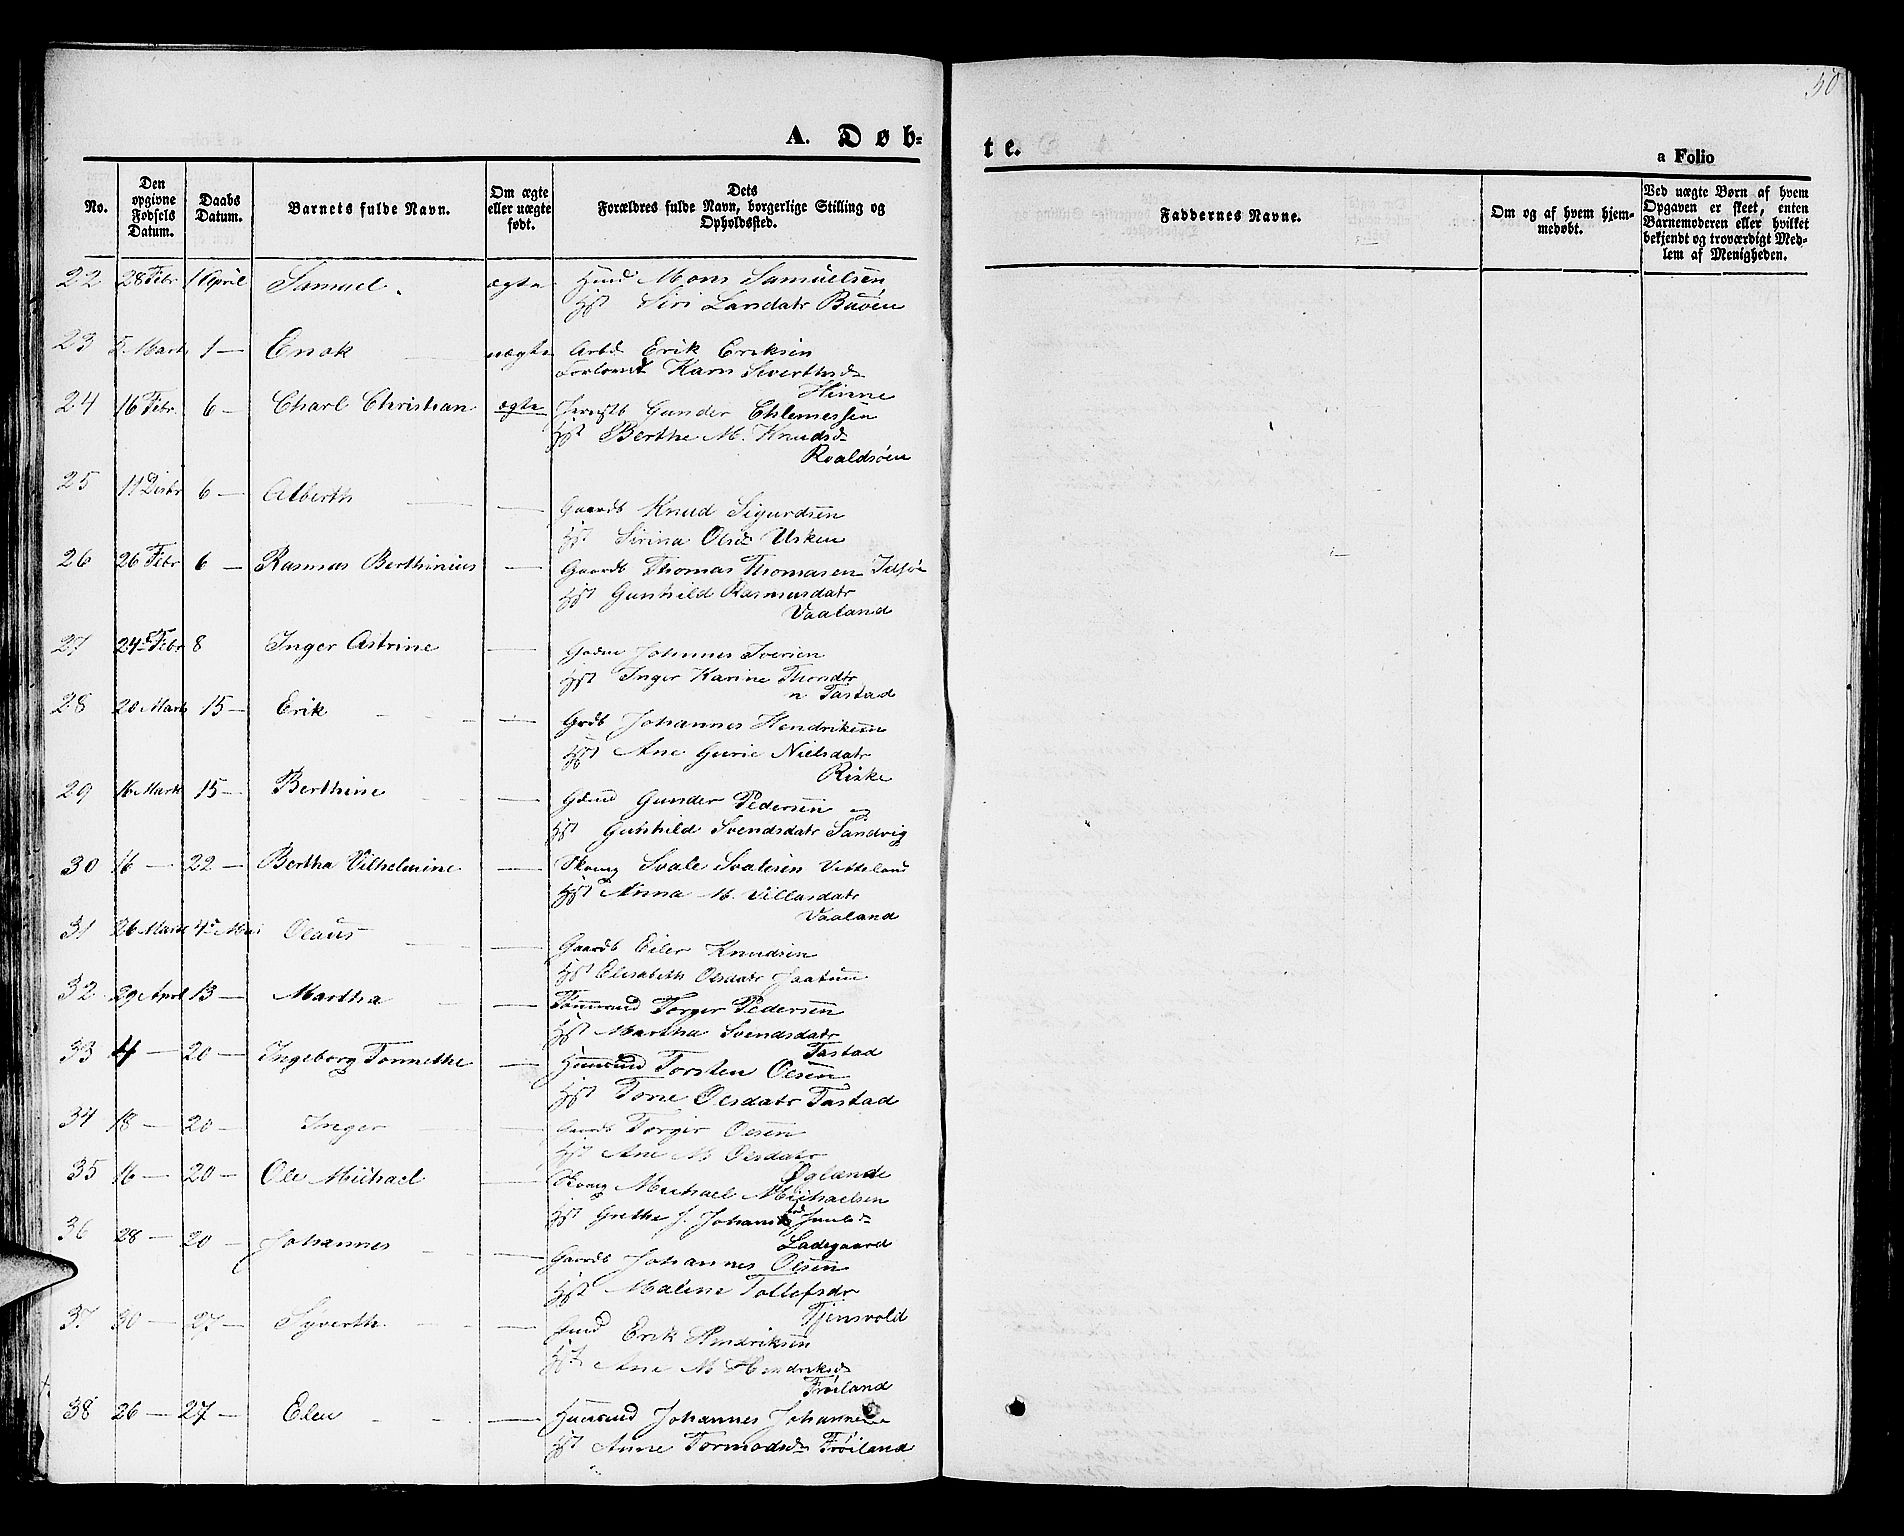 50
A. Døb-
te.
a Folio
No.
Den opgivne Fødsels Datum.
Daabs Datum.
Barnets fulde Navn.
Om ægte eller uægte født.
Dets Forældres fulde Navn, borgerlige Stilling og Opholdssted.
Faddernes Navne.
Om og af hvem hjem-
medøbt.
Ved uægte Børn af hvem
Opgaven er skeet, enten
Barnemoderen eller hvilket
bekjendt og troværdigt Med-
lem af Menigheden.
22 28 Febr 1 April Samuel ægte Huusd Mons Samuelsen
Hst Siri Larsdatr Buøen
23 5 Marts 1 — Enok uægte Arbd Erik Eriksen
Karn Sivertsd
Hinne
24 16 Febr 6 — Charl Christian ægte Gunder Ehlemessen
Hst Berthe M. Knudsd
Roaldsøen
25 11 Decbr 6 — Alberth — Gaardb Knud Sigurdsen
Hst Sirina Olsd Usken
26 26 Febr 6 — Rasmus Berthinius — Gaardb Thomas Thomasen Idsøe
Hst Gunhild Rasmusdatr
Vaaland
27 24 Febr 8 Inger Astrine — Johannes Iversen
Hst Inger Karine Thondtr
n Tastad
28 20 Marts 15 — Erik — Grdb Johannes Hendriksen
Hst Ane Gurie Nielsdatr
Riske
29 16 Marts 15 — Berthine — Gunder Pedersen og
Hst Gunhild Svendsdatr Sandvig
30 16 — 22 — Bertha Vilhelmine — Svale Svalesen
Hst Anna M. Villasdatr
Vaaland
31 26 Marts 4 Mai Olaus — Gaardb Eiler Knudsen
Hst Elisabeth Olsdatr Jaatun
32 29 April 13 — Martha — Tømmrmd Torger Pedersen
Hst Martha Svendsdatr
Tastad
33 4 — 20 — Ingeborg Tonnethe — Huusmd Torsten Olsen
Hst Tone Olsdatr Tastad
34 18 — 20 — Inger Gaardb Torger Olsen
Hst Ane M Olsdatr
Øglænde
35 16 — 20 — Ole Michael — Michael Michaelsen
Hst Grethe J. Johans
Ladegaard
36 28 — 20 — Johannes — Gaardb Johannes Olsen
Hst Malene Tollefsdr
Tjensvold
37 30 — 27 — Syverth — Erik Hendriksen
Hst Ane M Hendriksd
Frøiland
38 26 — 27 — Elen — Huusmd Johannes Johannesen
Hst Anne Tormodsd Frøiland